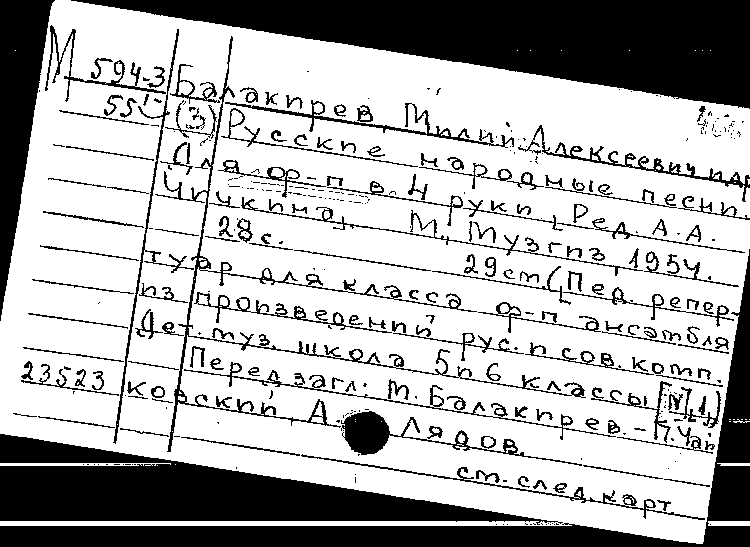 М 594-3 Балакирев, Милий Алексеевич и др.
55 (3) Русские народные песни.
Для ф-п в 4 руки, Ред. А.А.
Чичкина. М., Музгиз, 1954.
28 с. 29 см. (Пед. репер-
туар для класса ф-п ансамбля
из произведений рус. и сов. комп.
Дет. муз. школа 5 и 6 классы [№1])
Перед загл: М. Балакирев. - П. Чай
23523 ковский, А. Лядов.
см. след. карт